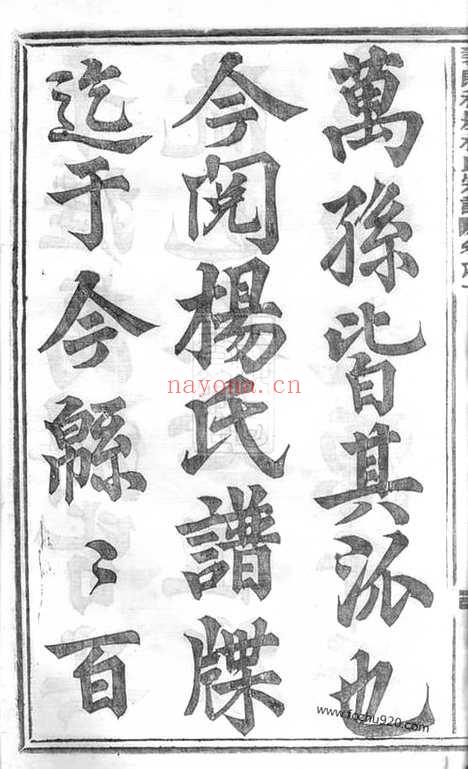 萬孫皆其派也
今閱楊氏譜牒
迄于今緜〻百
nayona.cn
www.fochu920.com